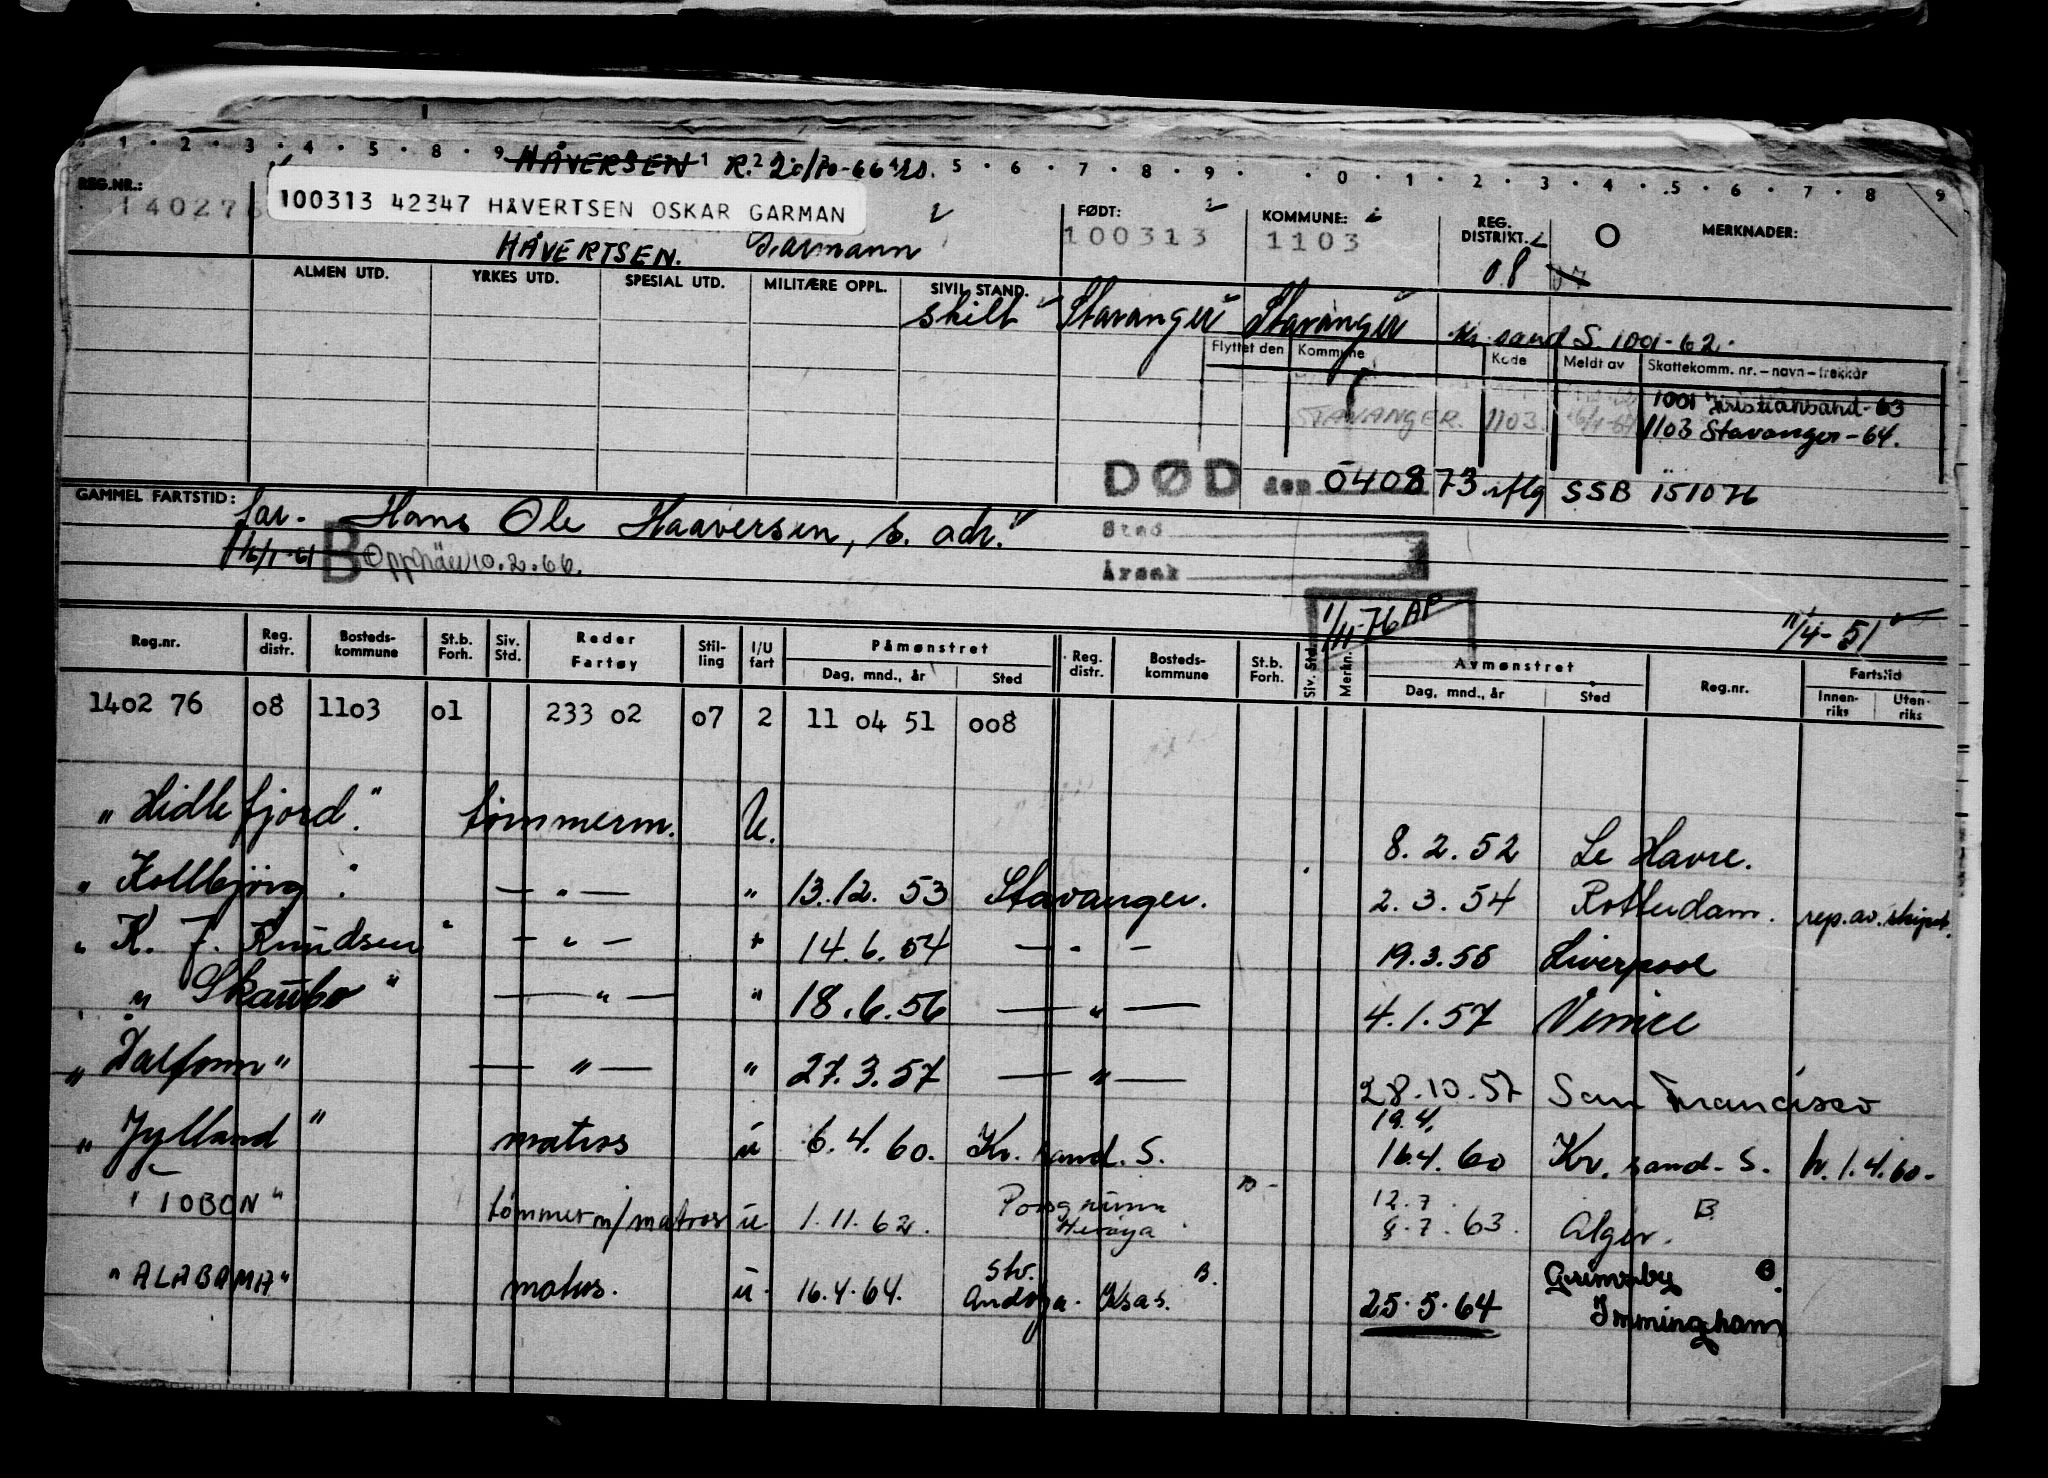 1 2 3 4 5 8 9 HÅVERSEN 1 R. 2 4 5 6 7 8 9 0 1 2 3 4 5 6 7 8 9
REG.NR.: 14027
100313 42347 HÅVERTSEN OSKAR GARMAN
FØDT: 100313
KOMMUNE: 1103
REG. DISTRIKT. 08 07
O
MERKNADER:
HÅVERTSEN. Garmann
ALMEN UTD. YRKES UTD. SPESIAL UTD. MILITÆRE OPPL. SIVIL STAND.
skilt Stavanger Stavanger Kr. sand S. 1001-62.
Flyttet den Kommune Kode Meldt av Skattekomm. nr. – navn – trekkår
1001 Kristiansand-63
STAVANGER. 1103. 1103 Stavanger-64.
DØD den 040873 iflg SSB 151076
GAMMEL FARTSTID: far. Hans Ole Haaversen, s. adr.
Sted
16/1-61 B Opphäv 10.2.66.
Årsak
1/11-76 AP
11/4-51
Reg.nr. Reg. distr. Bosteds- kommune St.b. Forh. Siv. Std. Reder Fartøy Stil- ling I/U fart Påmønstret Dag, mnd., år Sted Reg. distr. Bosteds- kommune St.b. Forh. Siv. Std. Merkn. Avmønstret Dag, mnd., år Sted Reg.nr. Fartstid Innen- riks Uten- riks
1402 76 08 1103 01 233 02 07 2 11 04 51 008
"Hidlefjord." tømmerm. U. 8.2.52 Le Havre.
"Kollbjörg". — " — " 13.12.53 Stavanger. 2.3.54 Rotterdam. rep. av. skipet.
"K. J. Knudsen" — " — " 14.6.54 — " — 19.3.55 Liverpool
"Skaubo" — " — " 18.6.56 — " — 4.1.57 Venice
"Dalfonn" — " — " 27.3.57 — " — 28.10.57 San Francisco
"Jylland" matros u 6.4.60. Kr. sand. S. 19.4. 16.4.60 Kr. sand. S. h. 1.4.60-
"TOBON" tømmerm/matros u 1.11.62. Porsgrunn Herøya 12.7. 8.7.63. Alger. B.
"ALABAMA" matros. u. 16.4.64. Stv. Andøya. Ksas. B. 25.5.64 Grimsby Immingham B.